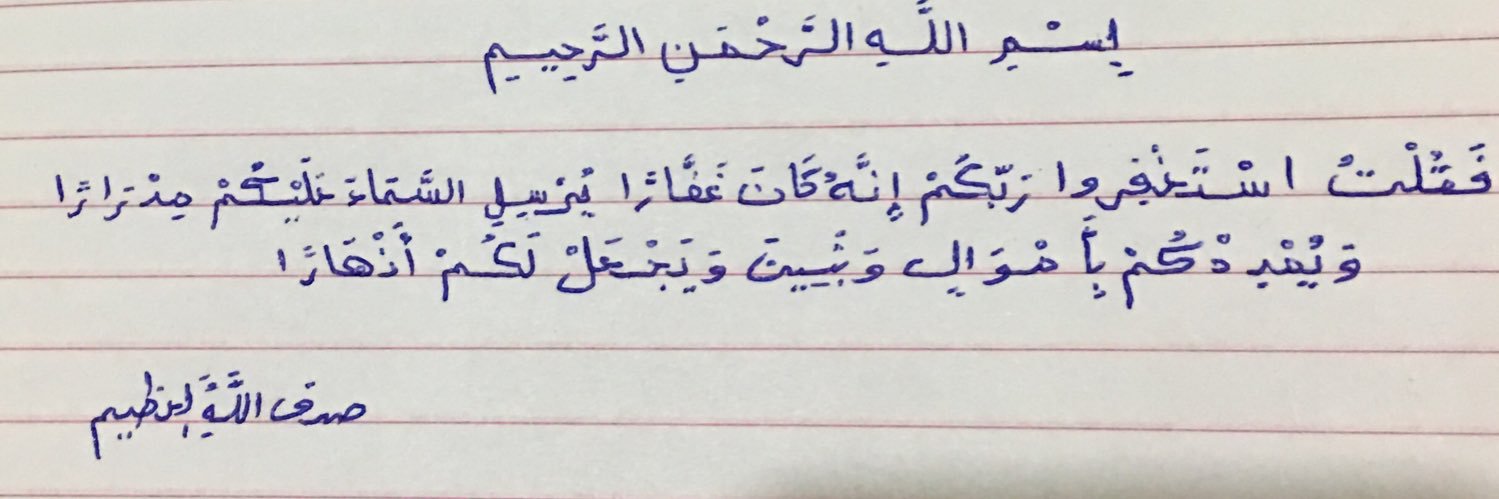 بِسْمِ اللَّهِ الرَّحْمَنِ الرَّحِيمِ
فَقُلْتُ اسْتَغْفِرُوا رَبَّكُمْ إِنَّهُ كَانَ غَفَّارًا يُرْسِلِ السَّمَاءَ عَلَيْكُمْ مِدْرَارًا
وَيُمْدِدْكُمْ بِأَمْوَالٍ وَبَنِينَ وَيَجْعَلْ لَكُمْ أَنْهَارًا
صدق اللَّهُ العظيم